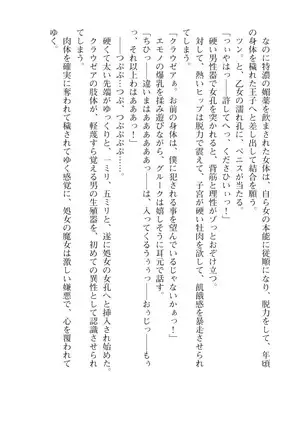 なのに特濃の媚薬を飲まされた女体は、自ら女の本能に従順になり、脱力をして、年頃
の身体を穢れた王子へと差し出して結合を願う。
ツン。と、乙女の濡れ孔に、ペニスが当たる。
「っぃやはっ――許してへっ、くださひぃぃっ！」
硬い男性器で女孔を突かれると、背筋と理性がゾっとおぞけ立つ。
対して、熱いヒップは脱力で震えて、子宮が硬い牡肉を望み、飢餓感を暴走させられ
てしまう。
「クラウゼアぁ。お前の身体は、僕に犯される事を望んでいるじゃないかぁっ！」
エモノの爆乳を揉み遊びながら、グルークは嬉しそうに耳元で話す。
「ちひっ――違いまはぁあああぁっ――は、入ってくるうぅぅっ――おぅじっ――もぅ
っ、それ以上わはあああっ！」
――つぷぷ…つぷ、つぷぷぷぷ…。
硬くて太い先端がゆっくりと、一ミリ、五ミリと、遂に処女の女孔へと挿入され始めた。
クラウゼアの肢体が、軽蔑すら覚える男の生殖器を、初めての異性として認識させられ
てしまう。
肉体を確実に奪われて穢されてゆく感覚に、処女の魔女は激しい嫌悪で、心を覆われて
ゆく。